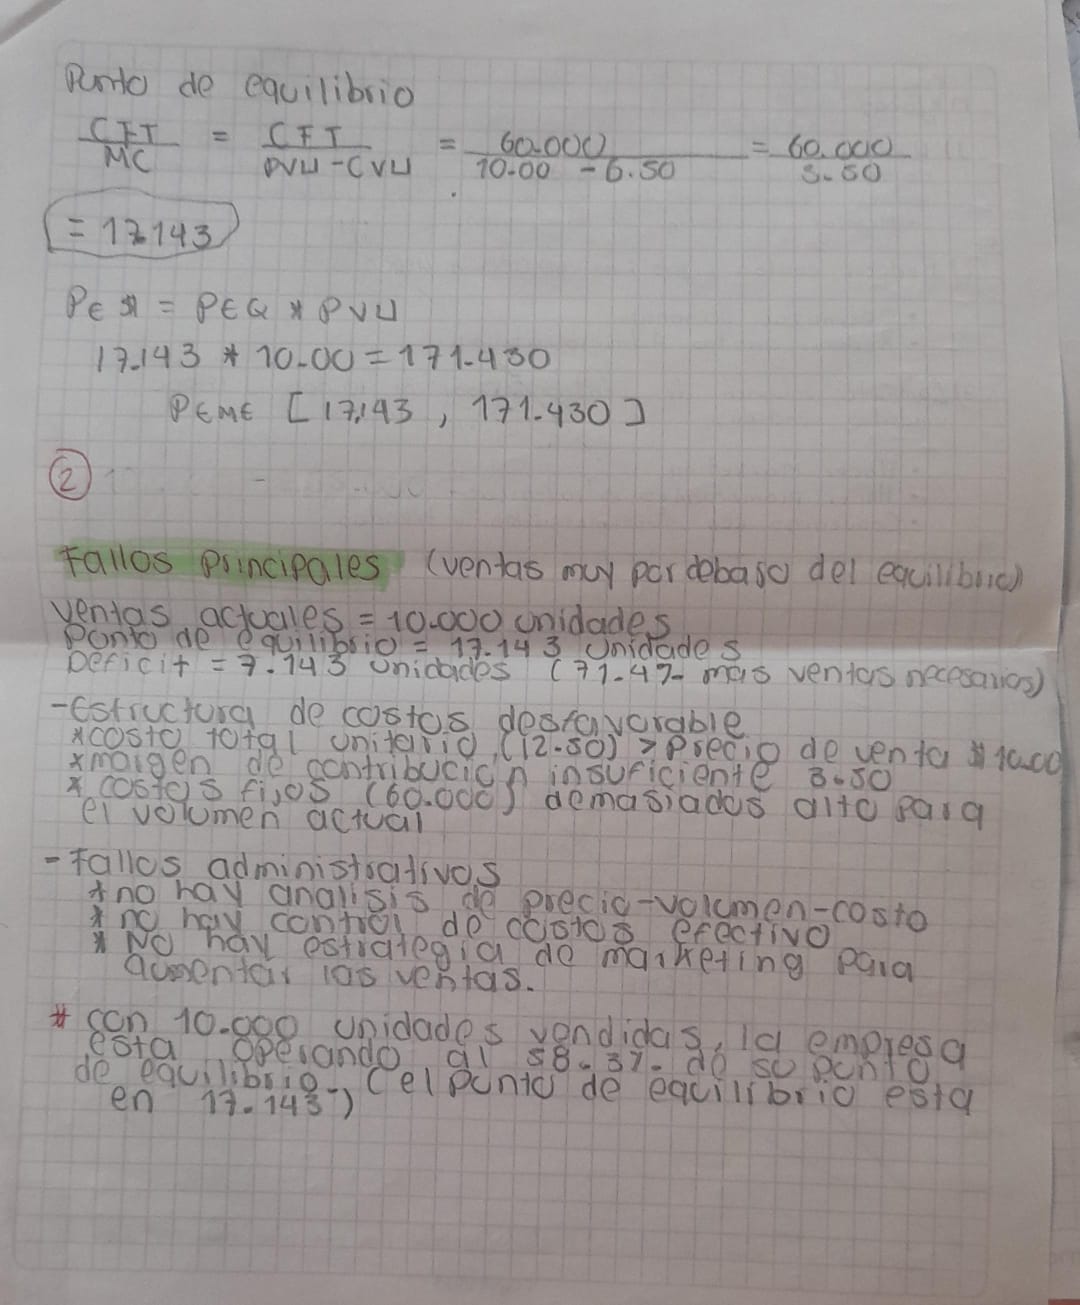 Punto de equilibrio
CFT/MC = CFT/PVU-CVU = 60.000/10.00 - 6.50 = 60.000/3.50
= 17.143
PE $ = PEQ * PVU
17.143 * 10.00 = 171.430
PEME [17.143 , 171.430]
2
Fallos principales (ventas muy por debaso del equilibrio)
ventas actuales = 10.000 unidades
Punto de equilibrio = 17.143 unidades
Deficit = 7.143 unidades (71.4% mas ventas necesarias)
- Estructura de costos desfavorable
*costo total unitario (12.50) > Precio de venta $ 10.00
*margen de contribucion insuficiente 3.50
* costos fijos (60.000) demasiados alto para
el volumen actual
- Fallos administrativos
* no hay analisis de precio-volumen-costo
* no hay control de costos efectivo
* No hay estrategia de marketing para
aumentar las ventas.
* con 10.000 unidades vendidas, la empresa
esta operando al 58.3% de su punto
de equilibrio. (el punto de equilibrio esta
en 17.143)